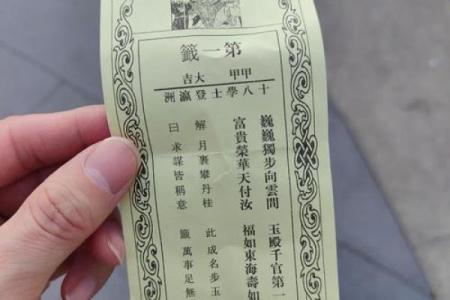 第一籤
甲甲 大吉
十八學士登瀛洲
巍巍獨步向雲間 玉殿千官第一
富貴榮華天付汝 福如東海壽如
解 月裏攀丹桂 此 成名步玉
曰 求謀皆稱意 籤 萬事足無